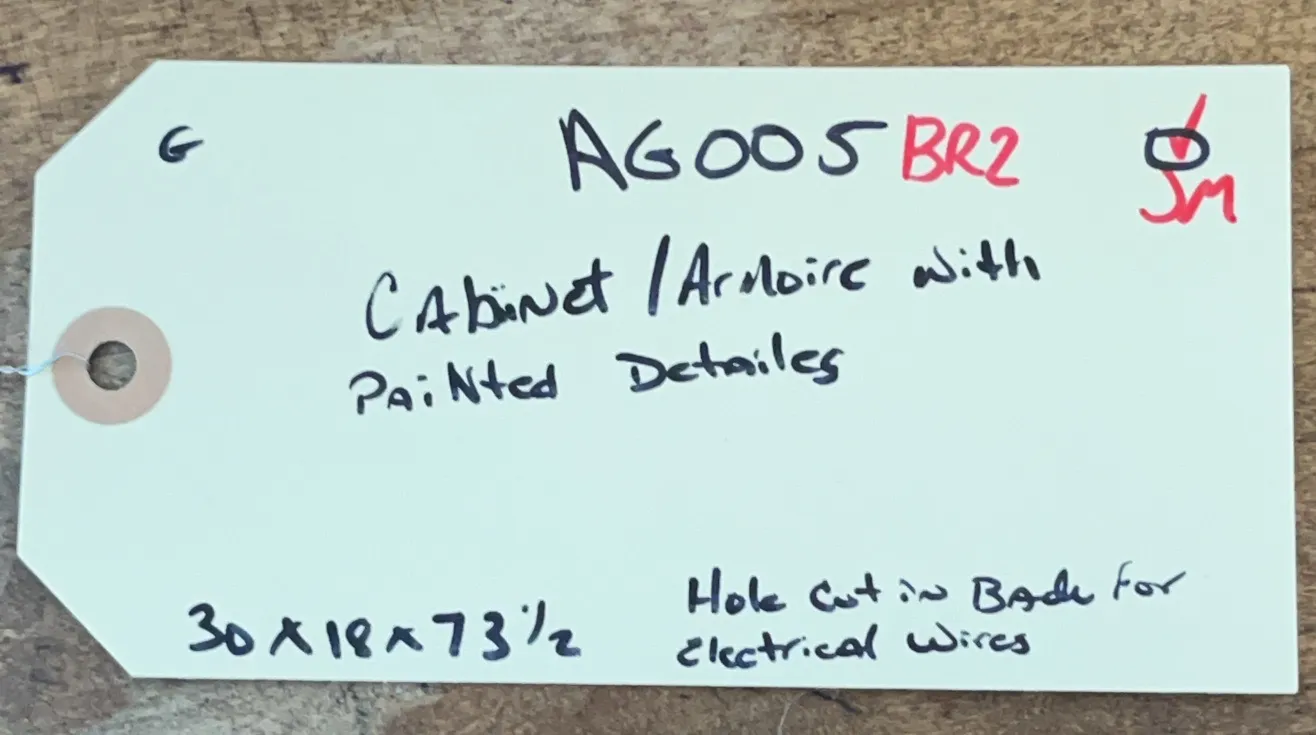 G
AG005 BR2
JM
Cabinet / Armoire with
Painted Detailes
30 x 18 x 73 1/2
Hole cut in Back For
Electrical wires